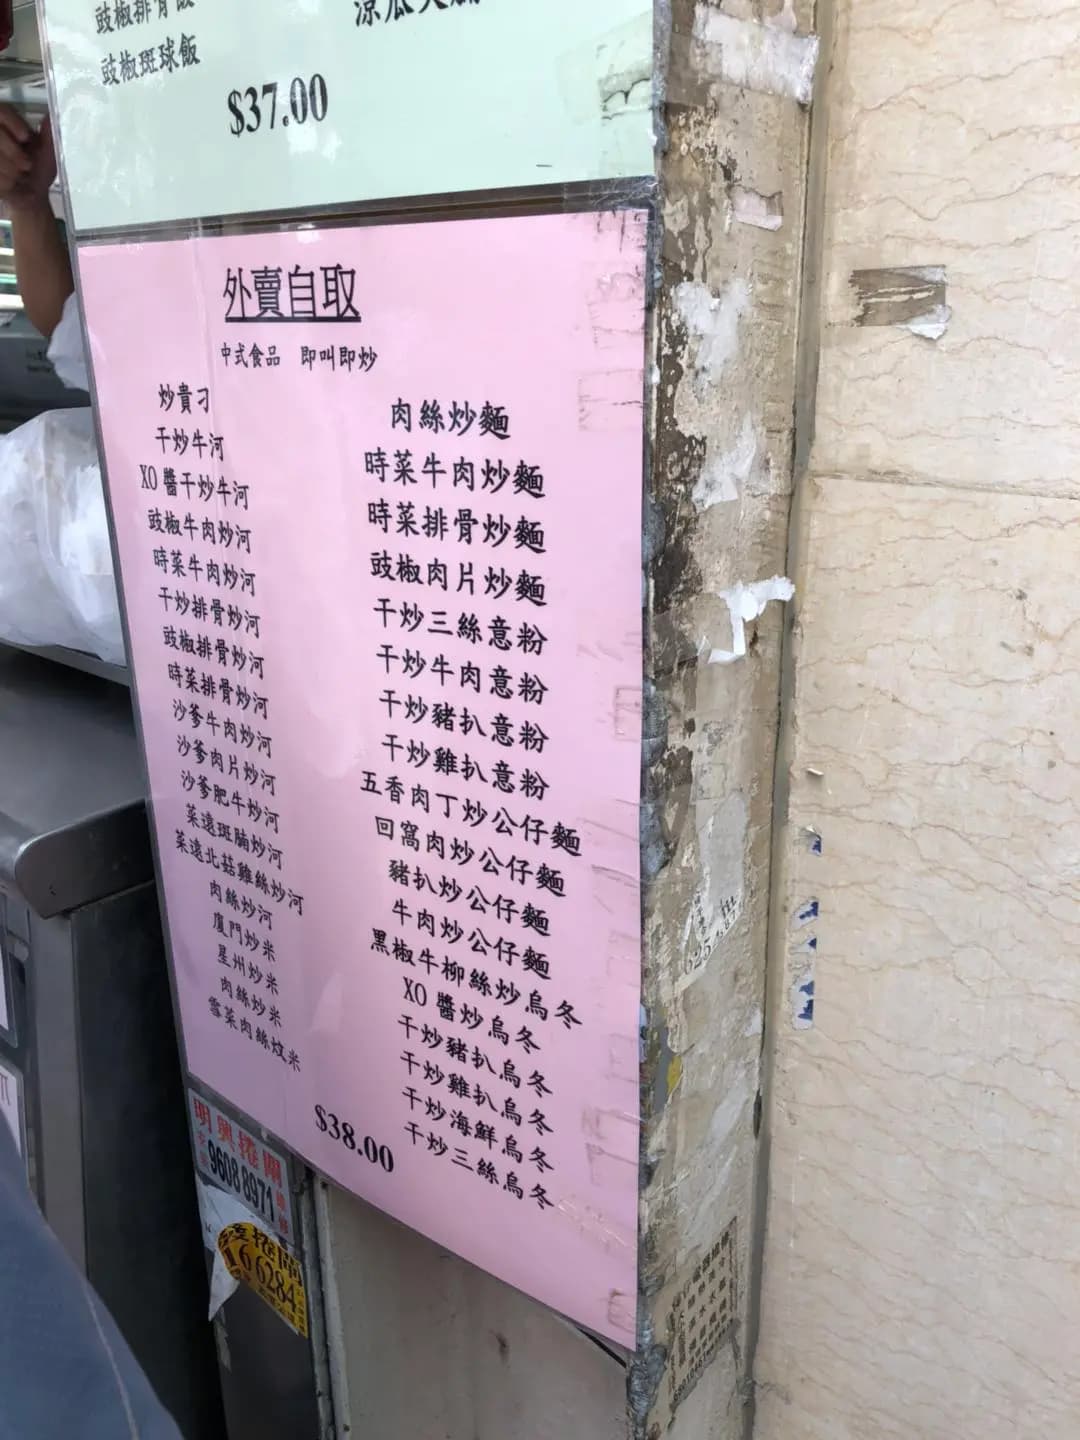 豉椒排骨飯
豉椒斑球飯
$37.00
外賣自取
中式食品 即叫即炒
炒貴刁
干炒牛河
XO醬干炒牛河
豉椒牛肉炒河
時菜牛肉炒河
干炒排骨炒河
豉椒排骨炒河
時菜排骨炒河
沙爹牛肉炒河
沙爹肉片炒河
沙爹肥牛炒河
菜遠斑腩炒河
菜遠北菇雞絲炒河
肉絲炒河
廈門炒米
星州炒米
肉絲炒米
雪菜肉絲炆米
肉絲炒麵
時菜牛肉炒麵
時菜排骨炒麵
豉椒肉片炒麵
干炒三絲意粉
干炒牛肉意粉
干炒豬扒意粉
干炒雞扒意粉
五香肉丁炒公仔麵
回窩肉炒公仔麵
豬扒炒公仔麵
牛肉炒公仔麵
黑椒牛柳絲炒烏冬
XO醬炒烏冬
干炒豬扒烏冬
干炒雞扒烏冬
干炒海鮮烏冬
干炒三絲烏冬
$38.00
明興捲閘
9608 8971